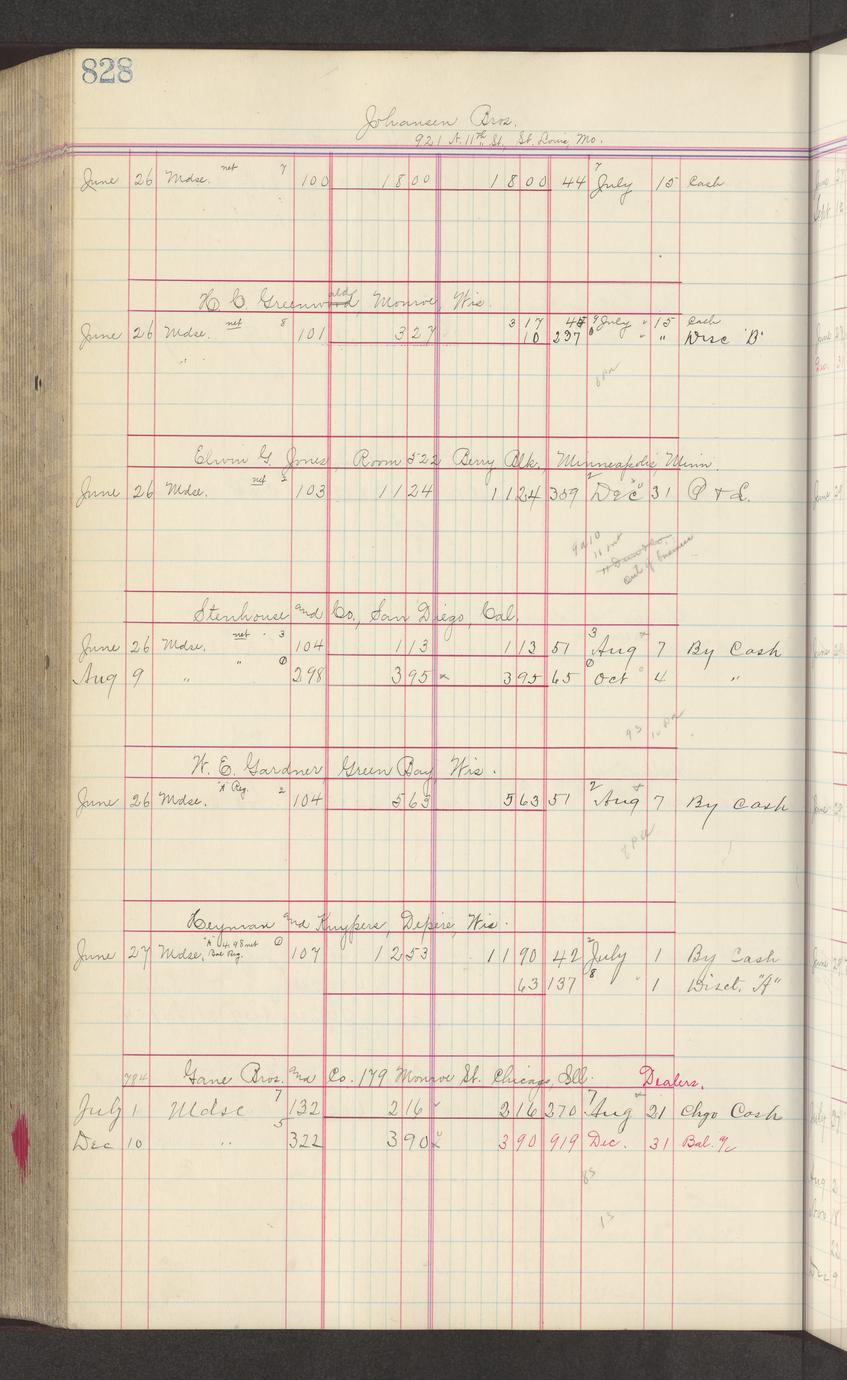 828
Johansen Bros.
921 N. 11th St., St. Louis, Mo.
June 26 Mdse. net 7 100 1800 1800 44 7 July 15 Cash
H C Greenwald, Monroe, Wis.
June 26 Mdse. net 8 101 327 317 45 9 July " 15 Cash
" 10 237 " " Disc "B"
Elwin G. Jones Room 522 Berry Blk., Minneapolis, Minn.
June 26 Mdse. net 2 103 1124 1124 309 2 Dec 31 P & L.
out of business
Stenhouse and Co., San Diego, Cal.
June 26 Mdse. net 3 104 113 113 51 3 Aug 7 By Cash
Aug 9 " " 298 395 395 65 Oct 4 "
W. E. Gardner Green Bay, Wis.
June 26 Mdse. "A" Reg. 2 104 563 563 51 2 Aug 7 By Cash
Heyman and Kuypers, Depere, Wis.
June 27 Mdse, "A" 4.98 net Bal Reg. 107 1253 1190 42 2 July 1 By Cash
63 137 8 " 1 Disct. "A"
784 Gane Bros. and Co. 179 Monroe St. Chicago, Ill. Dealers.
July 1 Mdse 7 132 216 216 270 7 Aug 21 Chgo Cash
Dec 10 " 5 322 390 390 919 Dec. 31 Bal. a/c